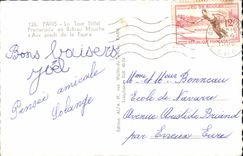 126. PARIS - La Tour Eiffel
Promenade en Bateau Mouche
« Aux pieds de la Tour »
Bons baisers
Pensée amicale
Solange
12F
Mme et Mr Bonneau
Ecole de Navarre
Avenue Aristide Briand
par Evreux Eure